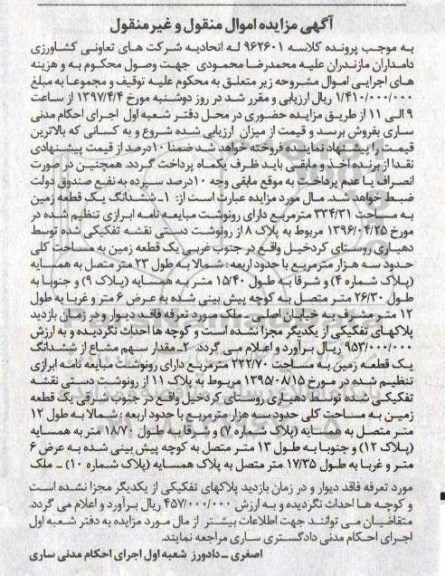 آگهی مزایده اموال منقول و غیر منقول
به موجب پرونده کلاسه ۹۶۲۶۰۱ لـه اتحادیه شرکت های تعاونی کشاورزی
دامداران مازندران علیه محمدرضا محمودی جهت وصول محکوم به و هزینه
های اجرایی اموال مشروحه زیر متعلق به محکوم علیه توقیف و مجموعا به مبلغ
۱/۴۱۰/۰۰۰/۰۰۰ ریال ارزیابی و مقرر شد در روز دوشنبه مورخ ۱۳۹۷/۴/۴ از ساعت
۹ الی ۱۱ از طریق مزایده حضوری در محل دفتر شعبه اول اجرای احکام مدنی
ساری بفروش برسد و قیمت از میزان ارزیابی شده شروع و به کسانی که بالاترین
قیمت را پیشنهاد نمایند فروخته خواهد شد ضمنا ۱۰درصد از قیمت پیشنهادی
نقدا از برنده اخذ و مابقی باید ظرف یکماه پرداخت گردد. همچنین در صورت
انصراف یا عدم پرداخت به موقع مابقی وجه ۱۰درصد سپرده به نفع صندوق دولت
ضبط خواهد شد. مال مورد مزایده عبارت است از: ۱-ششدانگ یک قطعه زمین
به مساحت ۳۳۴/۳۱ مترمربع دارای رونوشت مبایعه نامه ابرازی تنظیم شده در
مورخ ۱۳۹۶/۰۴/۲۵ مربوط به پلاک ۸ از رونوشت دستی نقشه تفکیکی شده توسط
دهیاری روستای کردخیل واقع در جنوب غربی یک قطعه زمین به مساحت کلی
حدود سه هزار مترمربع با حدود اربعه: شمالا به طول ۲۳ متر متصل به همسایه
(پلاک شماره ۴) و شرقا به طول ۱۵/۴۰ متر به همسایه (پلاک ۹) و جنوبا به
طول ۲۶/۳۰ متر متصل به کوچه پیش بینی شده به عرض ۶ متر و غربا به طول
۱۲ متر مشرف به خیابان اصلی. ملک مورد تعرفه فاقد دیوار و در زمان بازدید
پلاکهای تفکیکی از یکدیگر مجزا نشده است و کوچه ها احداث نگردیده و به ارزش
۹۵۳/۰۰۰/۰۰۰ ریال برآورد و اعلام می گردد. ۲-مقدار سهم مشاع از ششدانگ
یک قطعه زمین به مساحت ۲۲۲/۷۰ مترمربع دارای رونوشت مبایعه نامه ابرازی
تنظیم شده در مورخ ۱۳۹۵/۰۸/۱۵ مربوط به پلاک ۱۱ از رونوشت دستی نقشه
تفکیکی شده توسط دهیاری روستای کردخیل واقع در جنوب شرقی یک قطعه
زمین به مساحت کلی حدود سه هزار مترمربع با حدود اربعه: شمالا به طول ۱۲
متر متصل به همسایه (پلاک شماره ۷) و شرقا به طول ۱۸/۷۰ متر به همسایه
(پلاک ۱۲) و جنوبا به طول ۱۳ متر متصل به کوچه پیش بینی شده به عرض ۶
متر و غربا به طول ۱۷/۳۵ متر متصل به پلاک همسایه (پلاک شماره ۱۰) - ملک
مورد تعرفه فاقد دیوار و در زمان بازدید پلاکهای تفکیکی از یکدیگر مجزا نشده است
و کوچه ها احداث نگردیده و به ارزش ۴۵۷/۰۰۰/۰۰۰ ریال برآورد و اعلام می گردد.
متقاضیان می توانند جهت اطلاعات بیشتر از مال مورد مزایده به دفتر شعبه اول
اجرای احکام مدنی دادگستری ساری مراجعه نمایند.
اصغری - دادورز شعبه اول اجرای احکام مدنی ساری